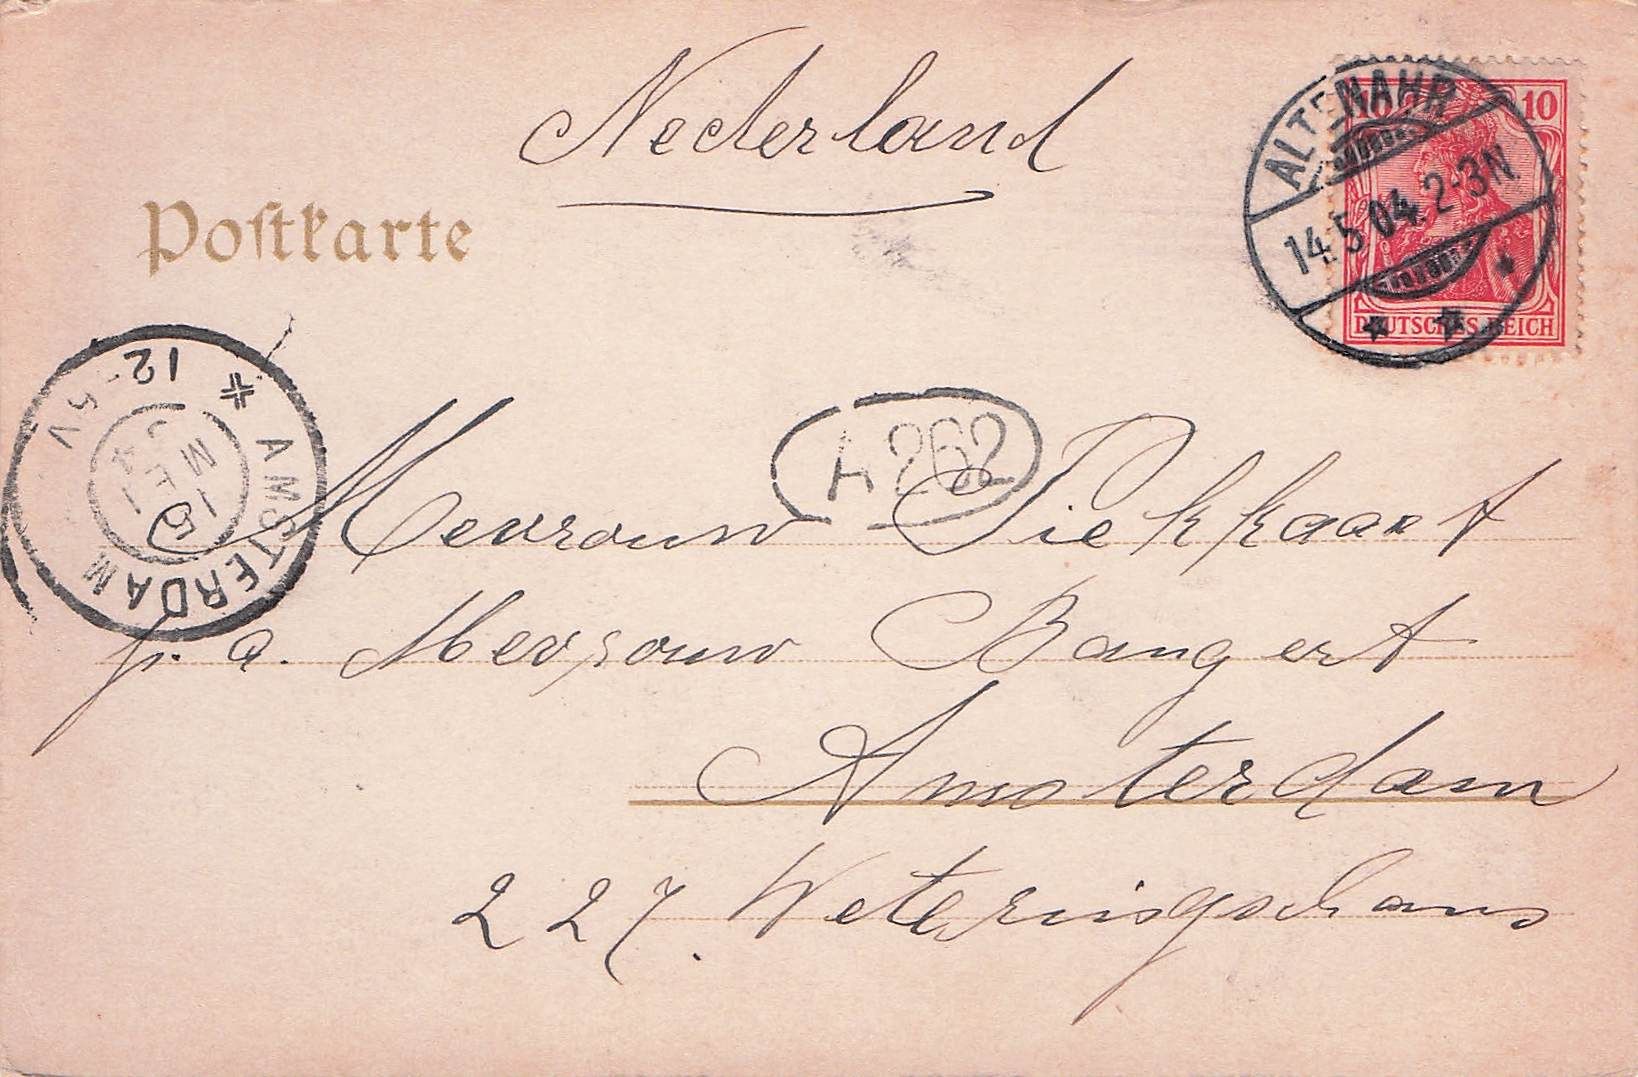 Nederland
Postkarte
ALTENAHR
14.5.04. 2-3N.
10 10
DEUTSCHES REICH
AMSTERDAM
12
15
MEI
A 262
Mevrouw Piekkaart
p. a. Mevrouw Bangert
Amsterdam
227. Weteringschans